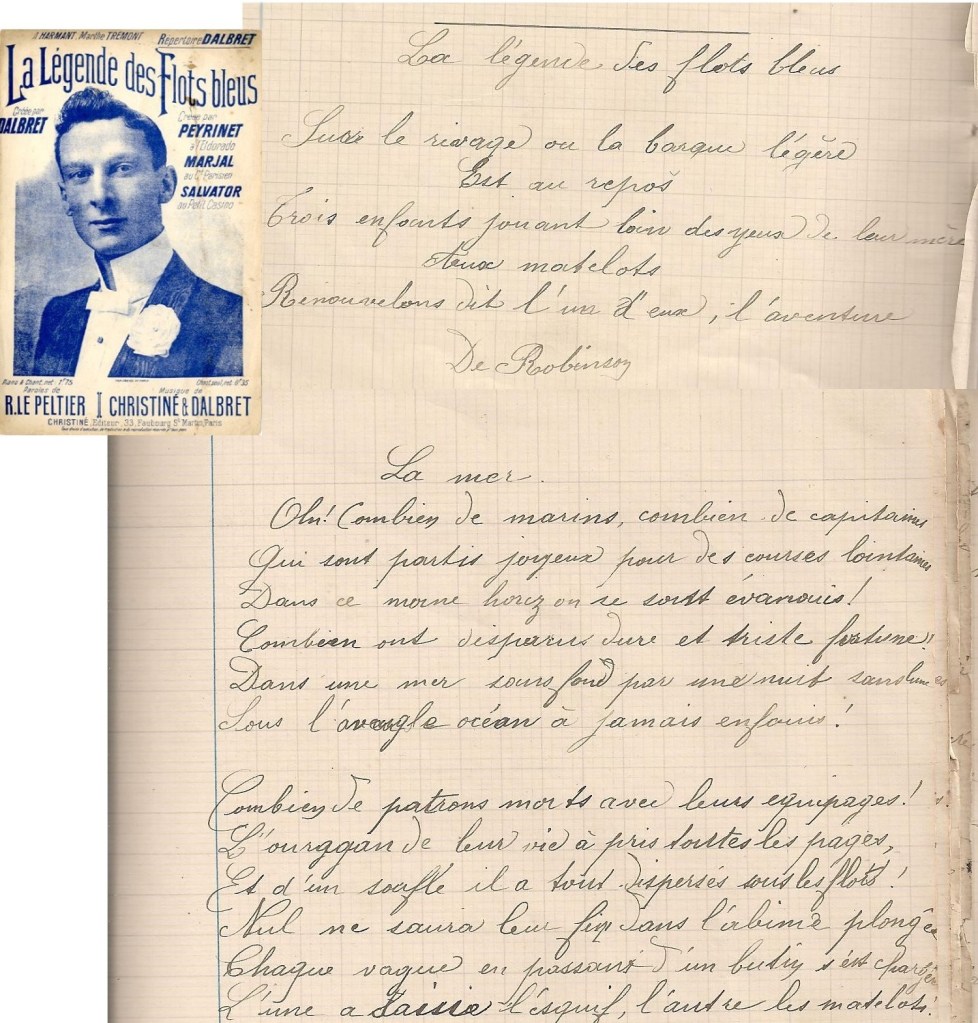 A HARMANT, Marthe TRÉMONT Répertoire DALBRET
La Légende des Flots bleus
Créée par
DALBRET
Créée par
PEYRINET
à l'Eldorado
MARJAL
au Pt Parisien
SALVATOR
au Petit Casino
Piano & Chant, net : 1f75
Chant seul, net 0f35
Paroles de
Musique de
R. LE PELTIER CHRISTINÉ & DALBRET
CHRISTINÉ, Editeur, 33, Faubourg St Martin, Paris
La légende des flots bleus
Sure le rivage ou la barque légère
Est au repos
Trois enfants jouant loin des yeux de leur mère
Aux matelots
Renouvelons dit l'un d'eux, l'aventure
De Robinson
La mer.
Oh! Combien de marins, combien de capitaines
Qui sont partis joyeux pour des courses lointaines
Dans ce morne horizon se sont évanouis!
Combien ont disparus dure et triste fortune!
Dans une mer sans fond par une nuit sans lune
Sous l'aveugle océan à jamais enfouis!
Combien de patrons morts avec leurs equipages!
L'ouraggan de leur vie à pris toutes les pages,
Et d'un souffle il a tout dispersés sous les flots!
Nul ne saura leur fin dans l'abime plongée
Chaque vague en passant d'un butin s'est
L'une a saisie l'esquif, l'autre les matelots!